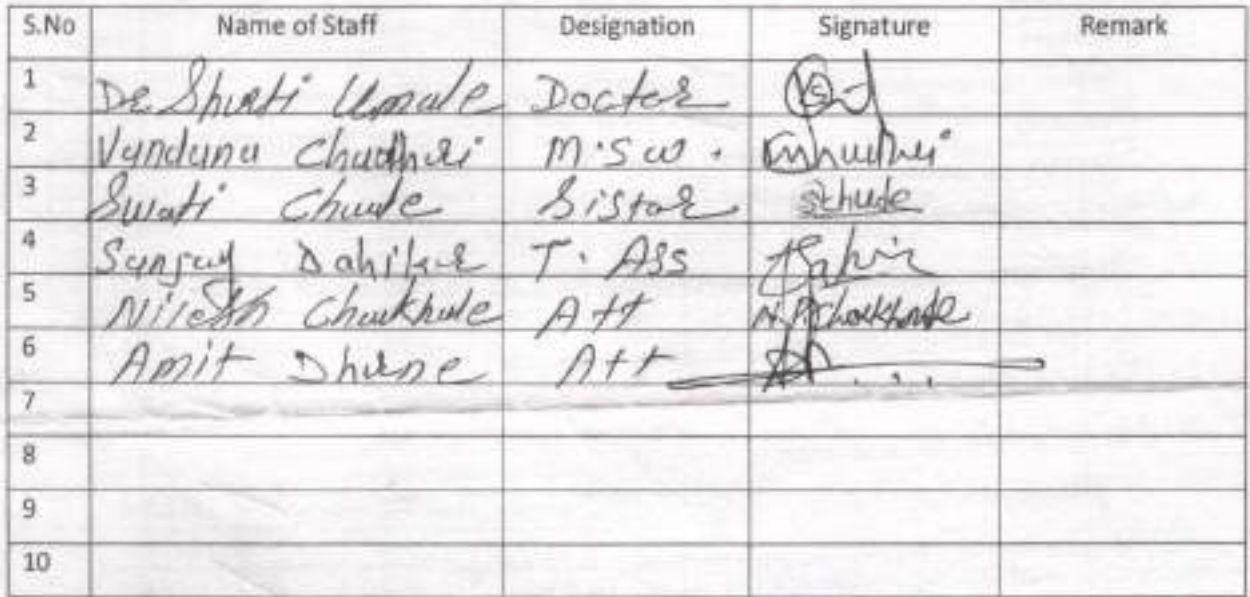 S.No Name of Staff Designation Signature Remark
1 Dr Shruti Umale Doctor
2 Vandana Chaudhari M.S.W.
3 Swati Chude Sistar Schude
4 Sanjay Dahikar T. Ass
5 Nilesh Chaukhule Att N.P.Chaukhule
6 Amit Dhurne Att
7
8
9
10